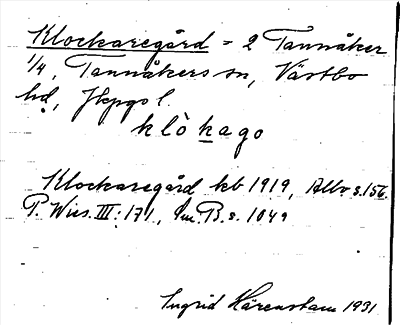 Klockaregård = 2 Tannåker
1/4, Tannåkers sn, Västbo
hd, Jkpgs l.
klòkago
Klockaregård kb 1919, Albo s. 156.
P. Wies. III: 171, Jm. B. s. 1049
Ingrid Härenstam 1931